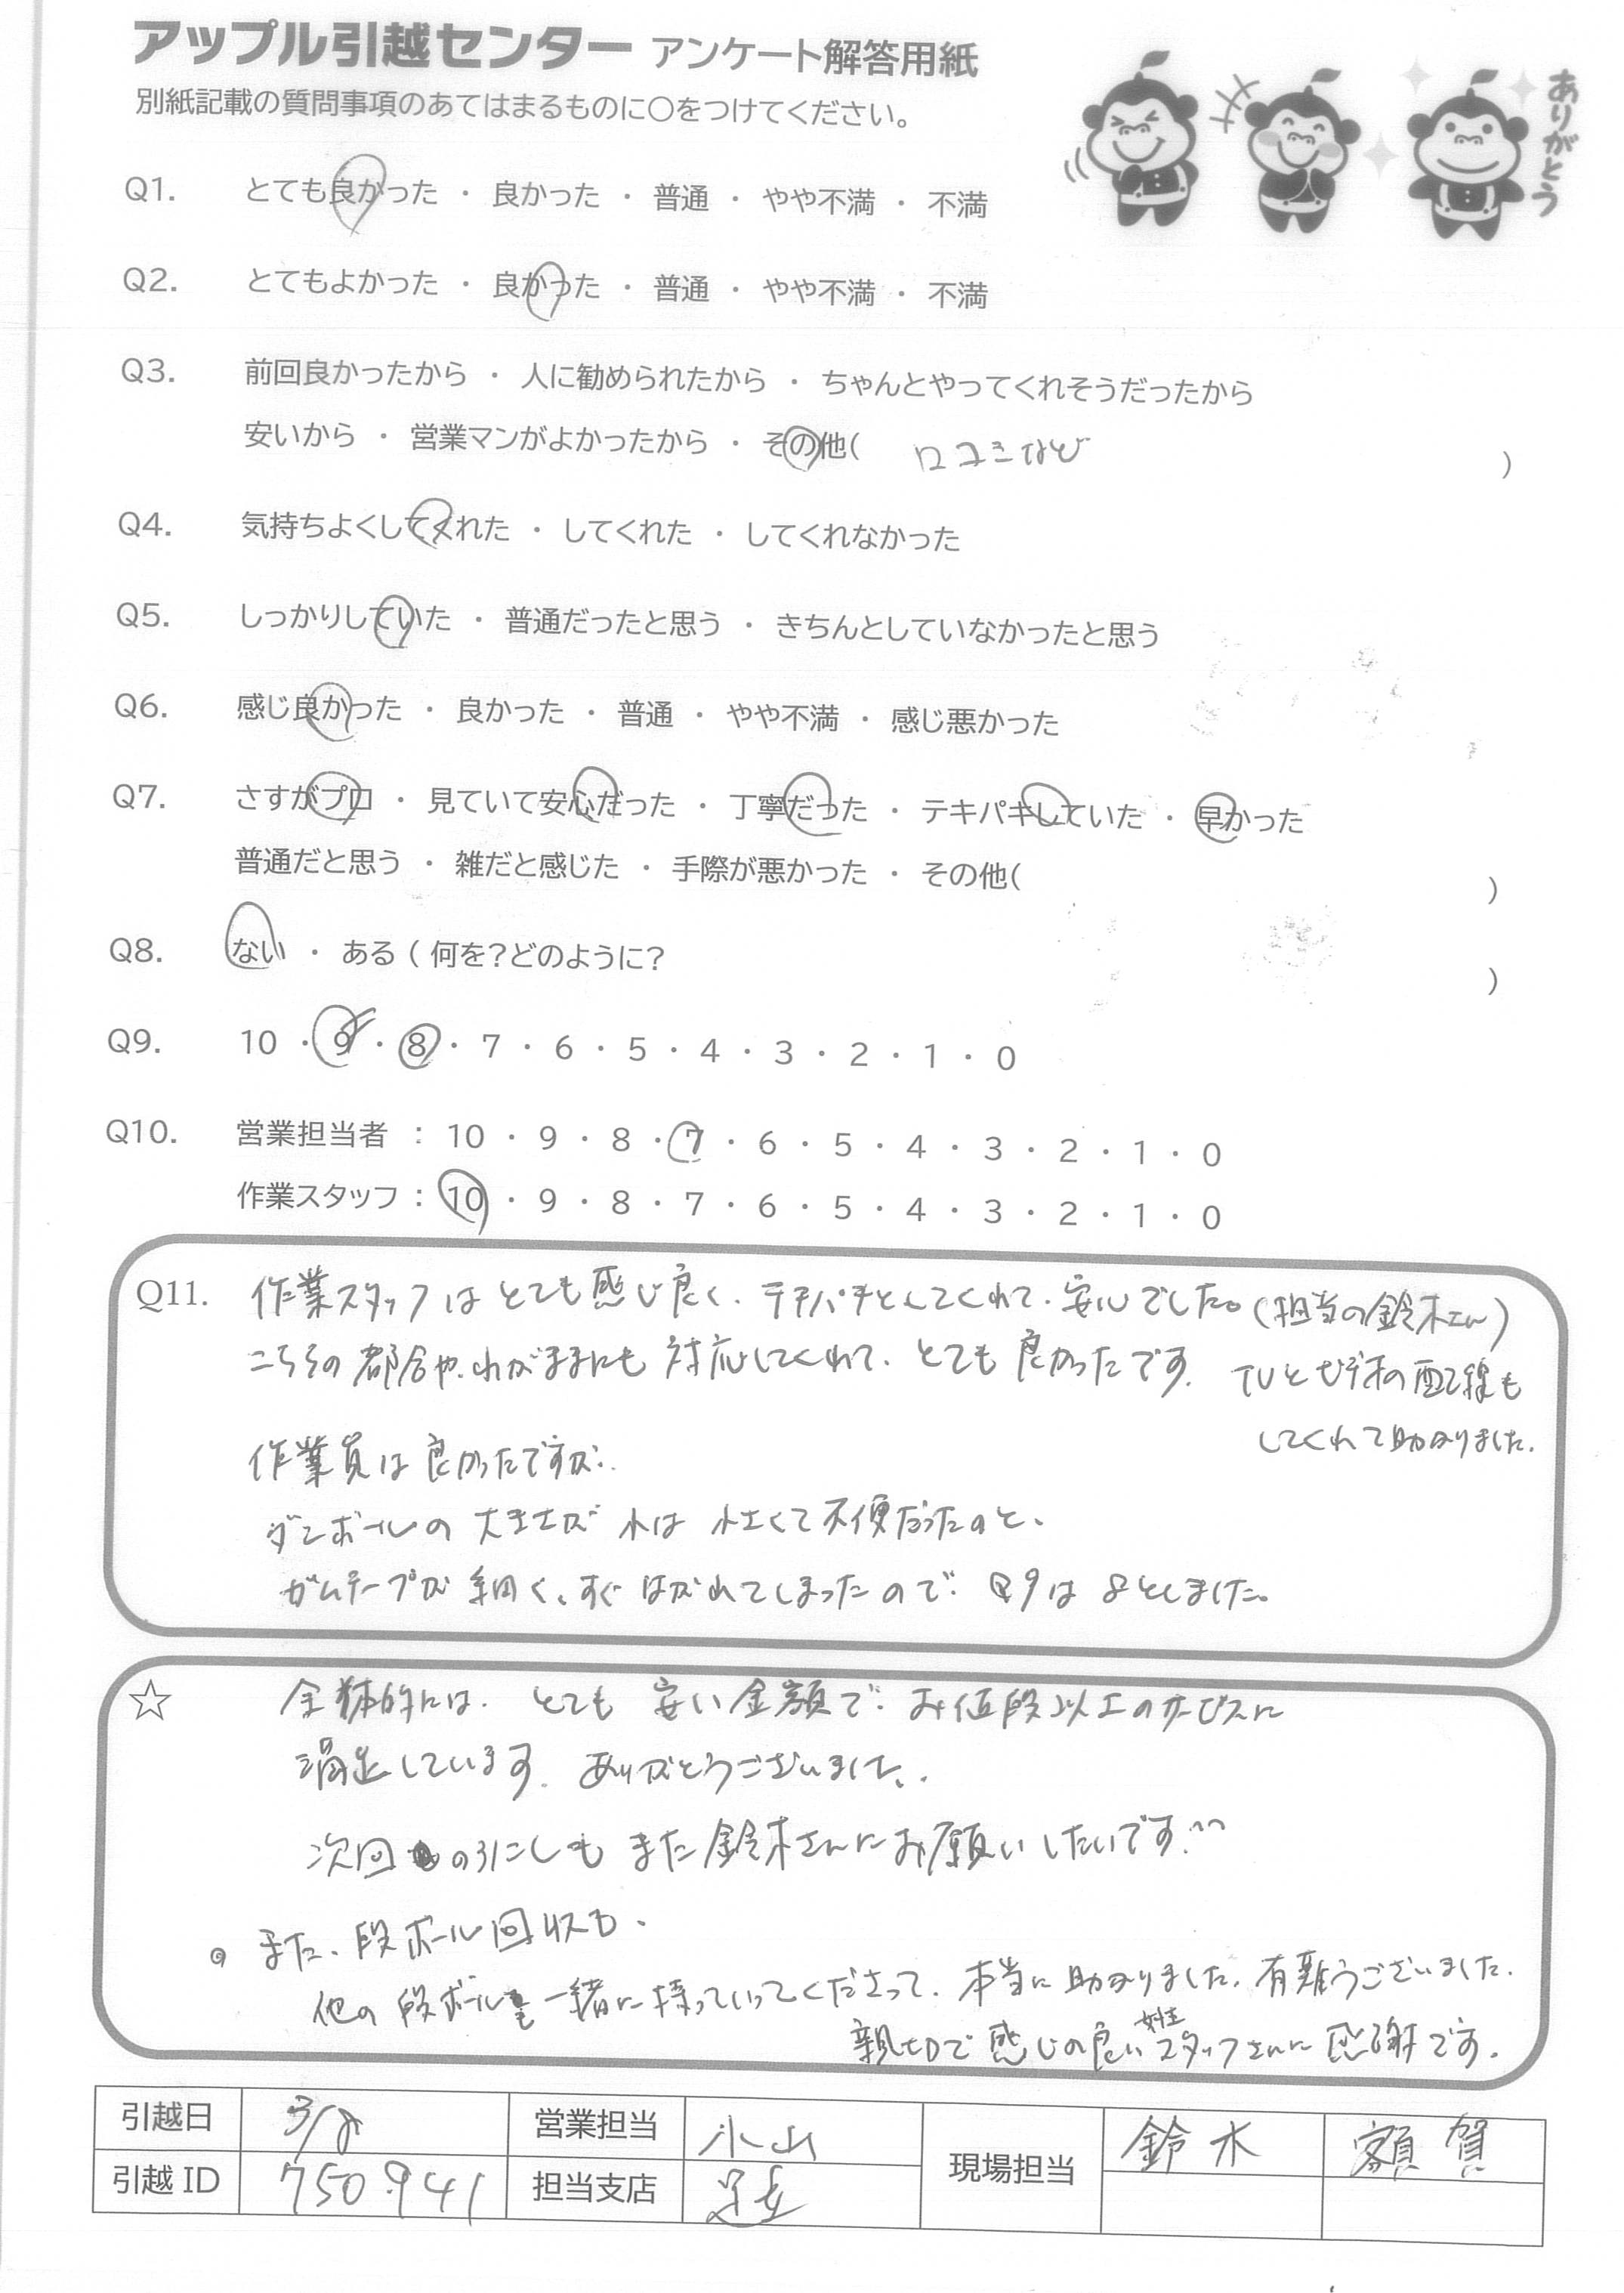 アップル引越センター アンケート解答用紙
別紙記載の質問事項のあてはまるものに○をつけてください。
ありがとう
Q1. とても良かった ・ 良かった ・ 普通 ・ やや不満 ・ 不満
Q2. とてもよかった ・ 良かった ・ 普通 ・ やや不満 ・ 不満
Q3. 前回良かったから ・ 人に勧められたから ・ ちゃんとやってくれそうだったから
安いから ・ 営業マンがよかったから ・ その他( 口コミなど )
Q4. 気持ちよくしてくれた ・ してくれた ・ してくれなかった
Q5. しっかりしていた ・ 普通だったと思う ・ きちんとしていなかったと思う
Q6. 感じ良かった ・ 良かった ・ 普通 ・ やや不満 ・ 感じ悪かった
Q7. さすがプロ ・ 見ていて安心だった ・ 丁寧だった ・ テキパキしていた ・ 早かった
普通だと思う ・ 雑だと感じた ・ 手際が悪かった ・ その他( )
Q8. ない ・ ある ( 何を?どのように? )
Q9. 10 ・ 9 ・ 8 ・ 7 ・ 6 ・ 5 ・ 4 ・ 3 ・ 2 ・ 1 ・ 0
Q10. 営業担当者 : 10 ・ 9 ・ 8 ・ 7 ・ 6 ・ 5 ・ 4 ・ 3 ・ 2 ・ 1 ・ 0
作業スタッフ : 10 ・ 9 ・ 8 ・ 7 ・ 6 ・ 5 ・ 4 ・ 3 ・ 2 ・ 1 ・ 0
Q11. 作業スタッフはとても感じ良く、テキパキとしてくれて、安心でした。(担当の鈴木さん)
こちらの都合や、わがままにも対応してくれて、とても良かったです。 TVとビデオの配線も
してくれて助かりました。
作業員は良かったですが、
ダンボールの大きさが 小は 小さくて不便だったのと、
ガムテープが細く、すぐはがれてしまったので、Q9は8としました。
☆ 全体的には、とても安い金額で、お値段以上のサービスに
満足しています。ありがとうございました。
次回の引こしも また鈴木さんにお願いしたいです^^
◎ また、段ボール回収も、
他の段ボールも一緒に持っていってくださって、本当に助かりました。有難うございました。
親切で感じの良い女性スタッフさんに感謝です。
引越日 3/8 営業担当 小山 現場担当 鈴木 額賀
引越 ID 750941 担当支店 足立